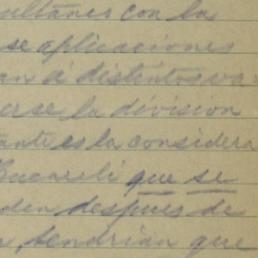 sultános con la
se aplicaciones
an á distintos va
erse la division
tante es la considera
Bucareli que se
den despues de
, tendrian que